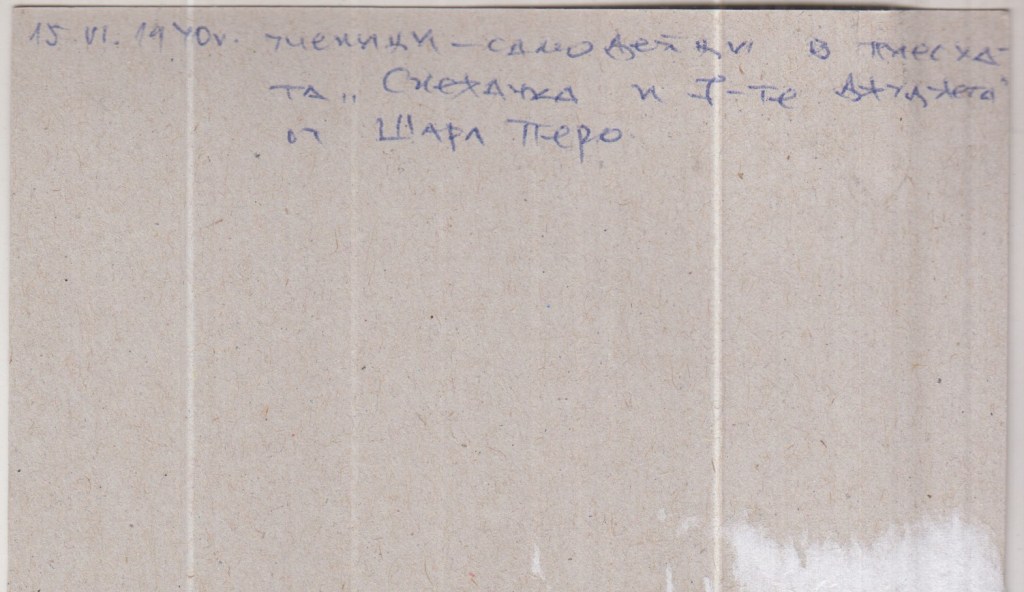 15.VI.1940г. ученици – самодейци в пиеса-
та „Снежанка и 7-те джуджета"
от Шарл Перо